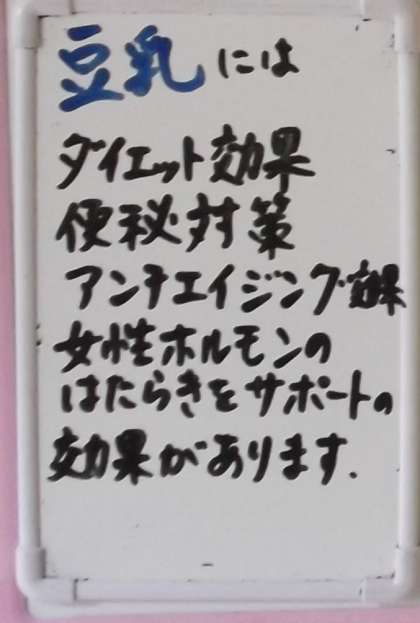 豆乳には
ダイエット効果
便秘対策
アンチエイジング効果
女性ホルモンの
はたらきをサポートの
効果があります.